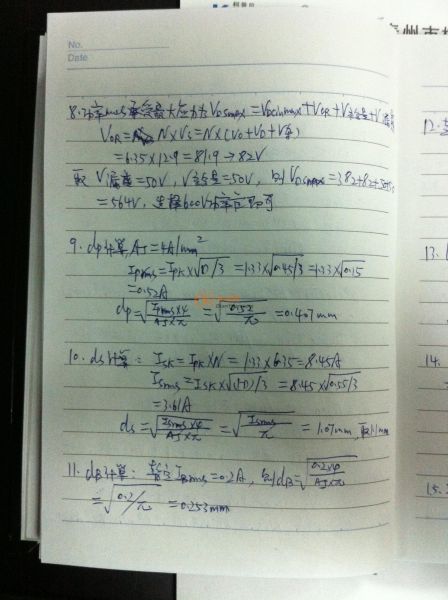 No.
Date
8.功率mos承受最大应力为 VDSmax = VDCinmax + VOR + V
VOR = N×VS = N×(VO+VD+V
= 6.35×12.9 = 81.9 → 82V
取 V温度=50V, V =50V, 则 VDSmax = 382+82+
= 564V, 选择600V功率 即可
9. dp计算, AJ=4A/mm²
Iprms = Ipk×√(D/3) = 1.33×√(0.45/3) = 1.33×√0.15
= 0.52A
dp = √(Iprms×4/(AJ×π)) = √(0.52/π) = 0.407mm
10. ds计算: Isk = Ipk×N = 1.33×6.35 = 8.45A
Isrms = Isk×√((1-D)/3) = 8.45×√(0.55/3)
= 3.61A
ds = √(Isrms×4/(AJ×π)) = √(Isrms/π) = 1.07mm, 取1.1mm
11. dB计算: IBrms=0.2A, 则dB = √(0.2×4/(AJ×π))
= √(0.2/π) = 0.253mm
12.
13.
14.
15.